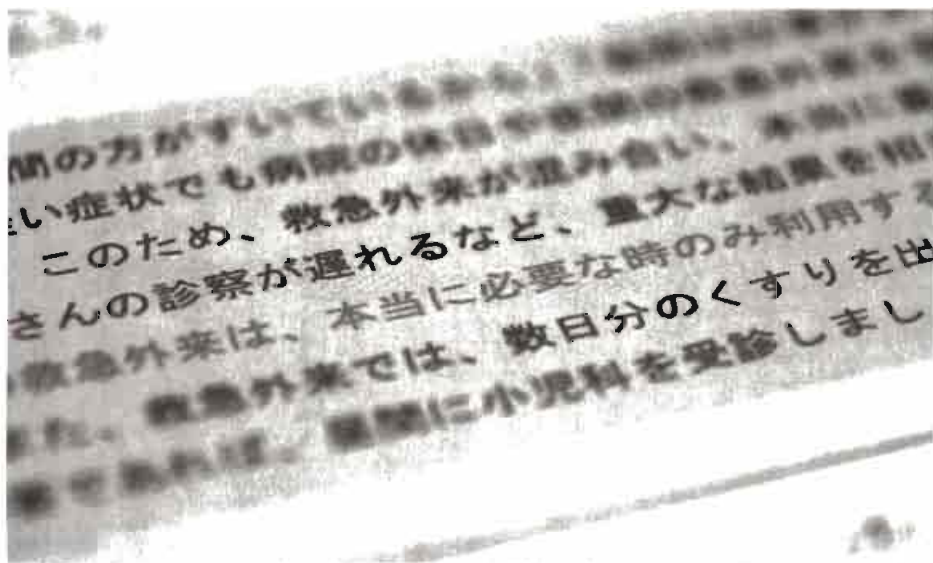 間の方がすいているから
い症状でも病院の休日や夜間の救急外来を
このため、救急外来が混み合い、本当に
さんの診察が遅れるなど、重大な結果を招
救急外来は、本当に必要な時のみ利用する
また、救急外来では、数日分のくすりを出
であれば、昼間に小児科を受診しまし